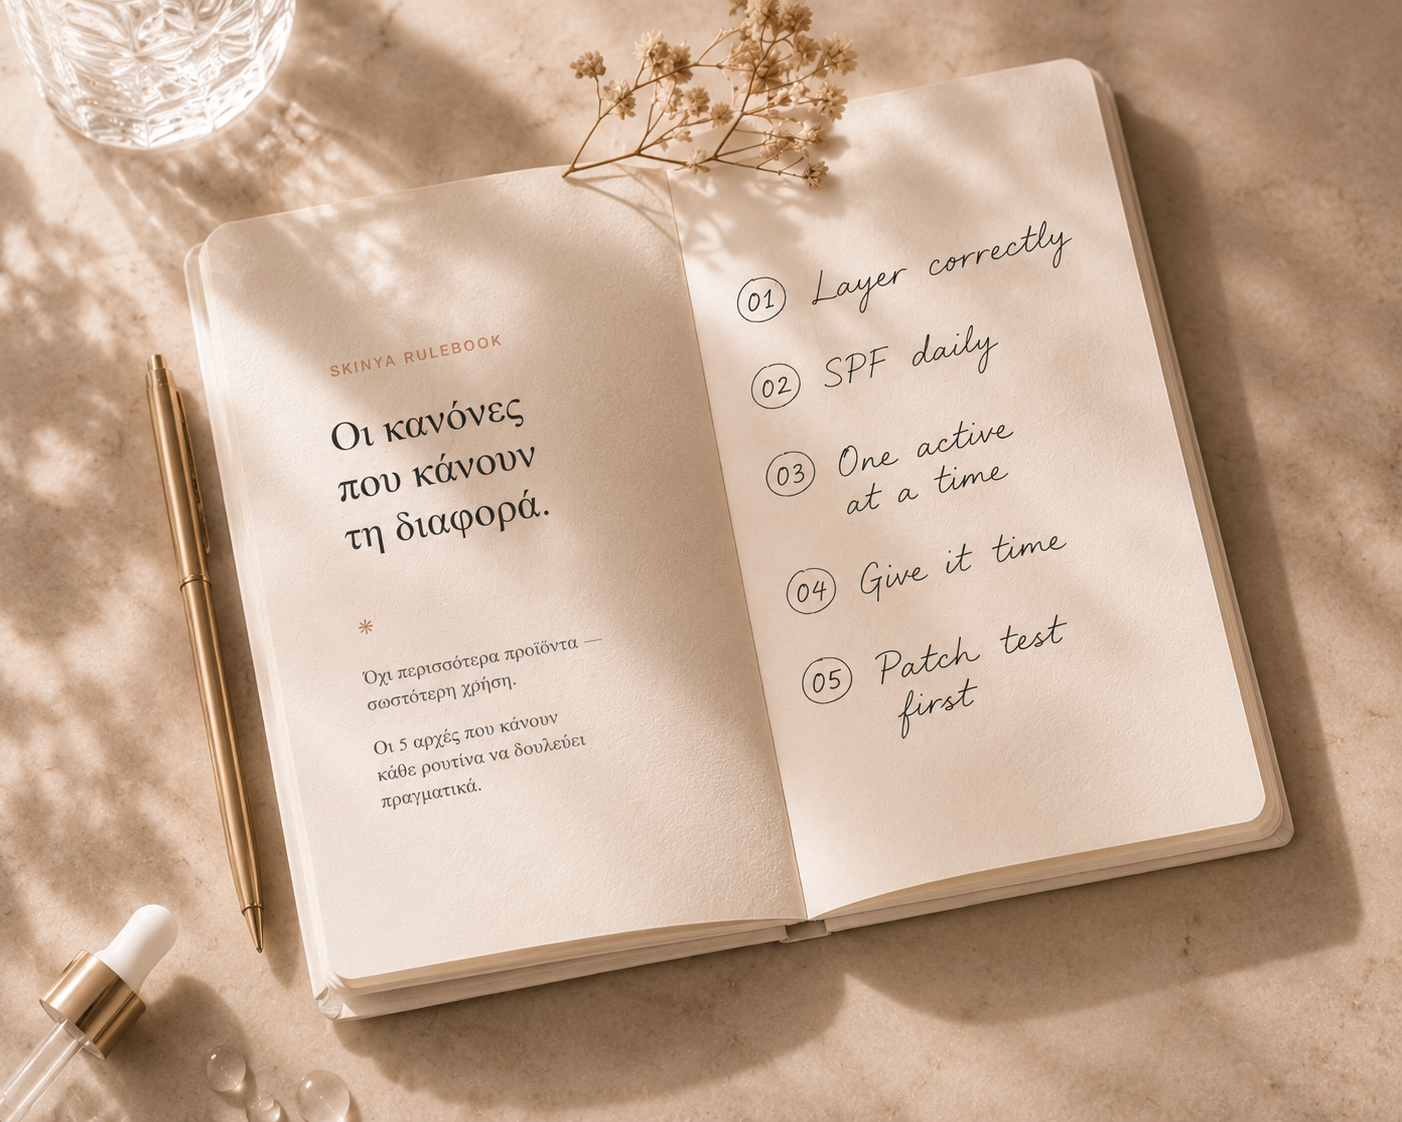 SKINYA RULEBOOK
Οι κανόνες
που κάνουν
τη διαφορά.
Όχι περισσότερα προϊόντα —
σωστότερη χρήση.
Οι 5 αρχές που κάνουν
κάθε ρουτίνα να δουλεύει
πραγματικά.
01 Layer correctly
02 SPF daily
03 One active
at a time
04 Give it time
05 Patch test
first